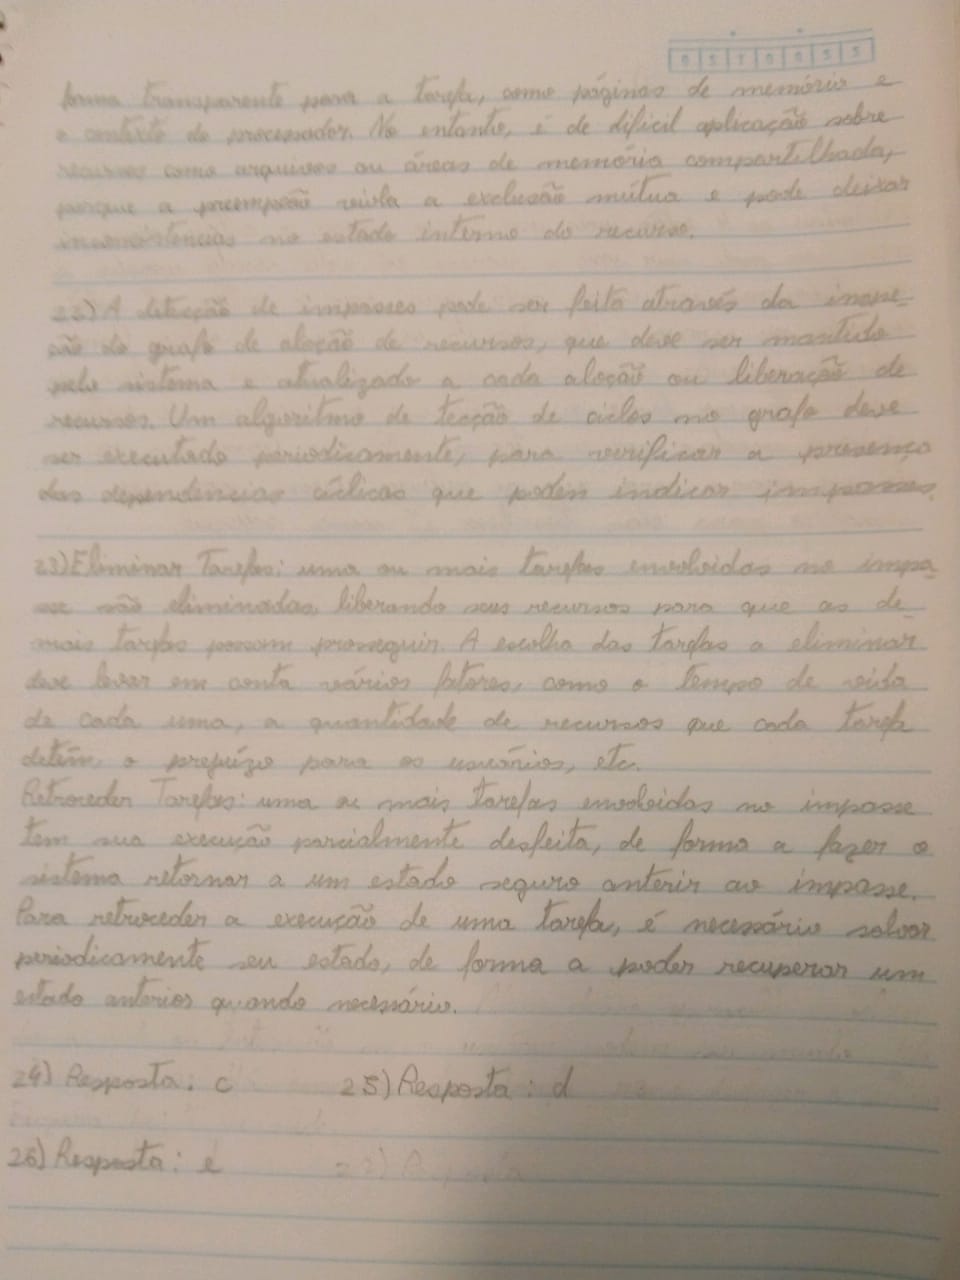 forma transparente para a tarefa, como páginas de memória e
o contexto do processador. No entanto, é de difícil aplicação sobre
recursos como arquivos ou áreas de memória compartilhada,
porque a preempção viola a exclusão mútua e pode deixar
inconsistências no estado interno do recurso.
22) A detecção de impasses pode ser feita através da inspe-
ção do grafo de alocão de recursos, que deve ser mantido
pelo sistema e atualizado a cada alocão ou liberação de
recursos. Um algoritmo de tecção de ciclos no grafo deve
ser executado periodicamente, para verificar a presença
das dependencias cíclicas que podem indicar impasses.
23) Eliminar Tarefas: uma ou mais tarefas envolvidas no impa
sse são eliminadas, liberando seus recursos para que as de
mais tarefas possam prosseguir. A escolha das tarefas a eliminar
deve levar em conta vários fatores, como o tempo de vida
de cada uma, a quantidade de recursos que cada tarefa
detém, o prejuízo para os usuários, etc.
Retroceder Tarefas: uma ou mais tarefas envolvidas no impasse
tem sua execução parcialmente desfeita, de forma a fazer o
sistema retornar a um estado seguro anterir ao impasse.
Para retroceder a execução de uma tarefa, é necessário salvar
periodicamente seu estado, de forma a poder recuperar um
estado anterios quando necessário.
24) Resposta: c 25) Resposta: d
26) Resposta: e